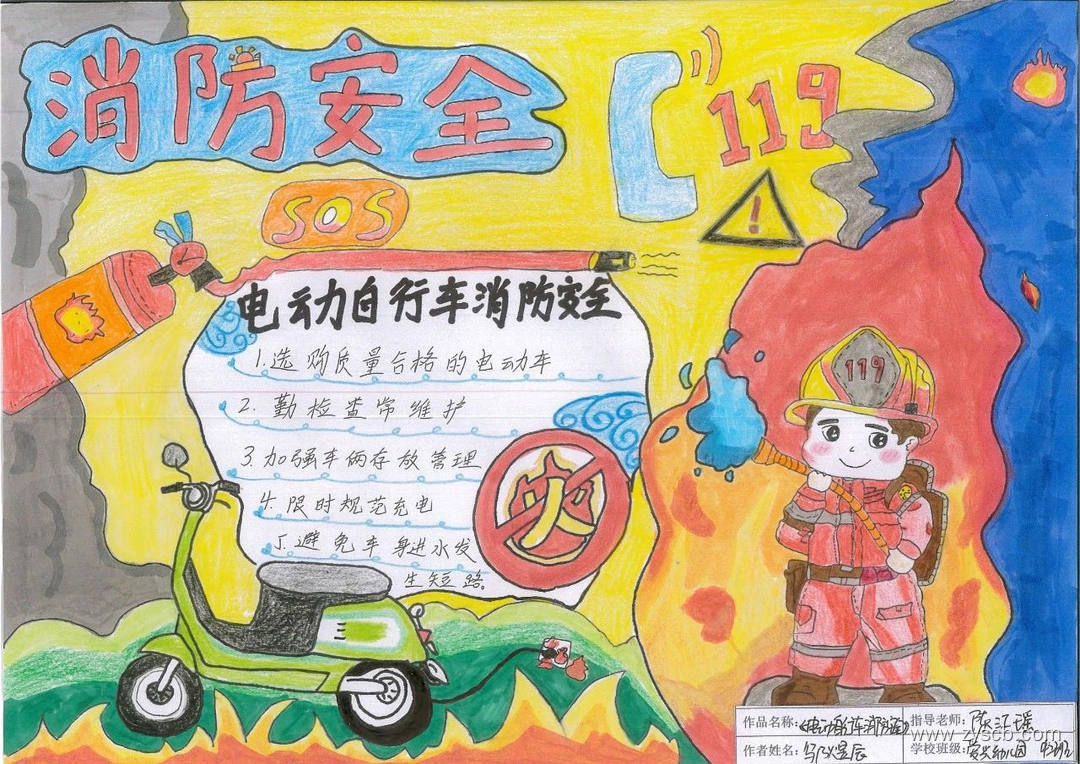 消防安全
119
SOS
电动自行车消防安全
1.选购质量合格的电动车
2.勤检查常维护
3.加强车俩存放管理
4.限时规范充电
5.避免车身进水发
生短路。
火
119
作品名称:《电动自行车消防安全》
指导老师:陈江瑶
作者姓名:
学校班级:幼儿园
www.zyscb.com